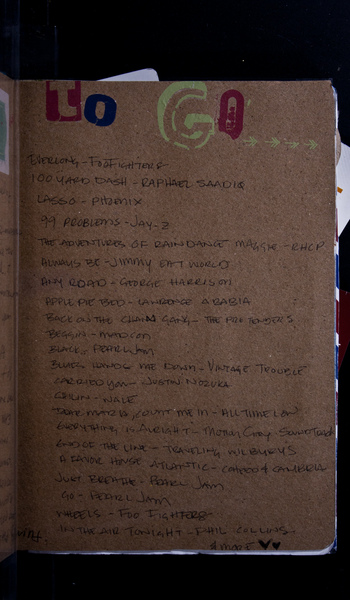 To GO
EVERLONG - FOO FIGHTERS
100 YARD DASH - RAPHAEL SAADIQ
LASSO - PHOENIX
99 PROBLEMS - JAY-Z
THE ADVENTURES OF RAIN DANCE MAGGIE - RHCP
ALWAYS BE - JIMMY EAT WORLD
ANY ROAD - GEORGE HARRISON
APPLE PIE BED - LAWRENCE ARABIA
BACK ON THE CHAIN GANG - THE PRETENDERS
BEGGIN - MADCON
BLACK, PEARL JAM
BLUES HAND ME DOWN - VINTAGE TROUBLE
CARRIED YOU - JUSTIN NOZUKA
- WALE
DEAR MARIA, COUNT ME IN - ALL TIME LOW
EVERYTHING IS ALRIGHT - MOTION CITY SOUNDTRACK
END OF THE LINE - TRAVELING WILBURYS
A FAVOR HOUSE ATLANTIC - COHEED & CAMBRIA
JUST BREATHE - PEARL JAM
GO - PEARL JAM
WHEELS - FOO FIGHTERS
IN THE AIR TONIGHT - PHIL COLLINS
& MORE ♥♥